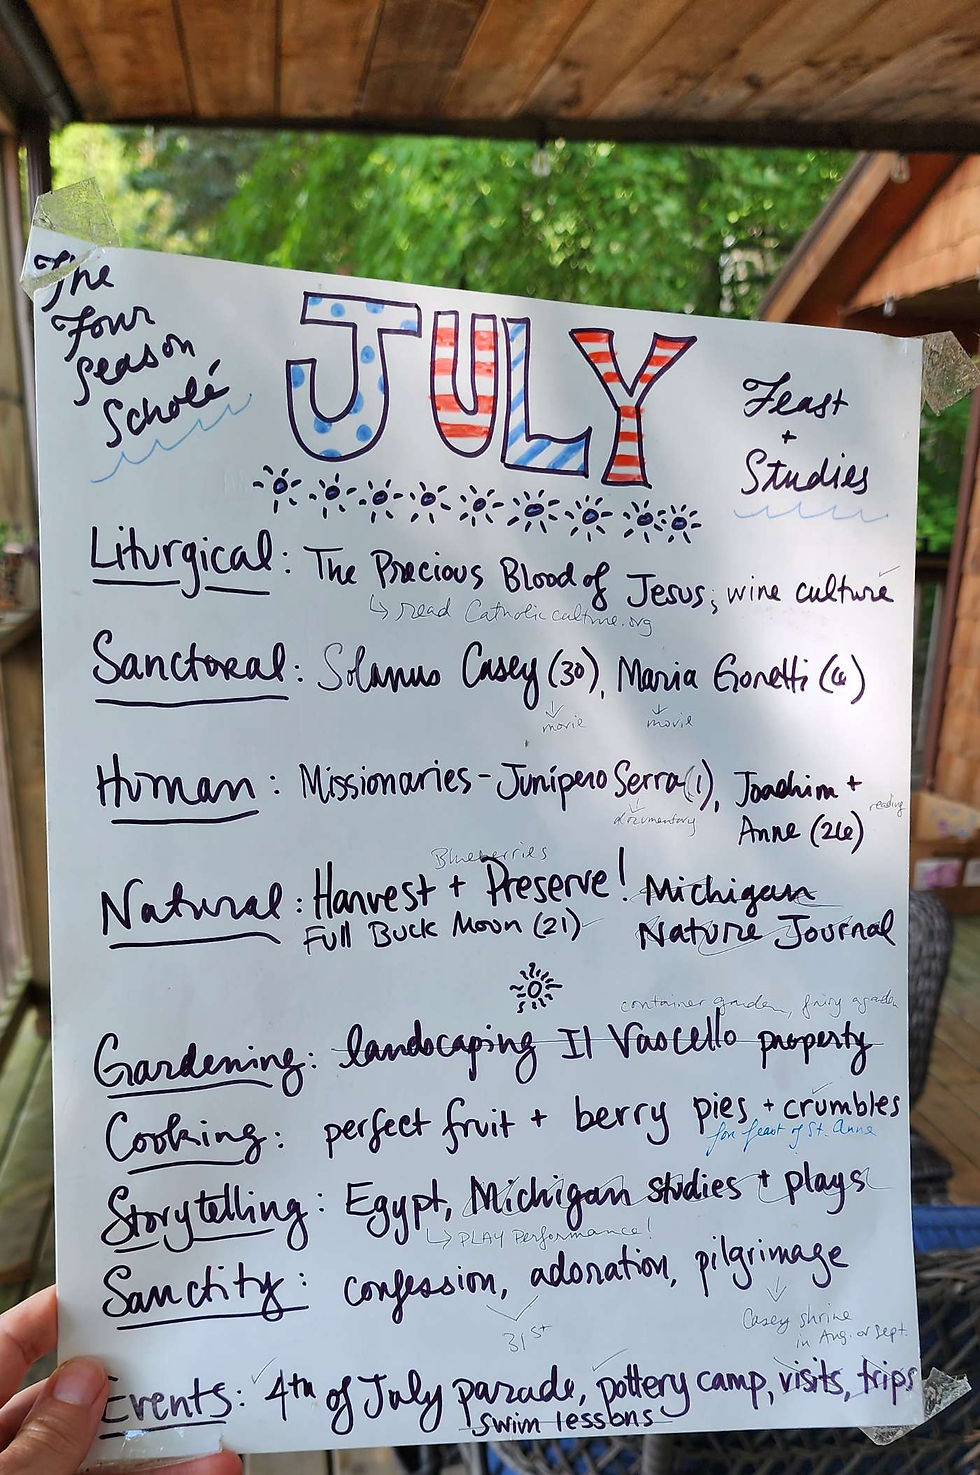 The
Four
Season
Scholé
JULY
Feast
+
Studies
Liturgical: The Precious Blood of Jesus; wine culture
↳ read Catholicculture.org
Sanctoral: Solanus Casey (30), Maria Goretti (6)
movie movie
Human: Missionaries - Junípero Serra (1), Joachim +
documentary reading
Anne (26)
Blueberries
Natural: Harvest + Preserve! Michigan
Full Buck Moon (21) Nature Journal
container garden, fairy garden
Gardening: landscaping Il Vascello property
Cooking: perfect fruit + berry pies + crumbles
for feast of St. Anne
Storytelling: Egypt, Michigan studies + plays
↳ PLAY Performance!
Sanctity: confession, adoration, pilgrimage
31st Casey shrine
in Aug. or Sept.
Events: 4th of July parade, pottery camp, visits, trips
swim lessons